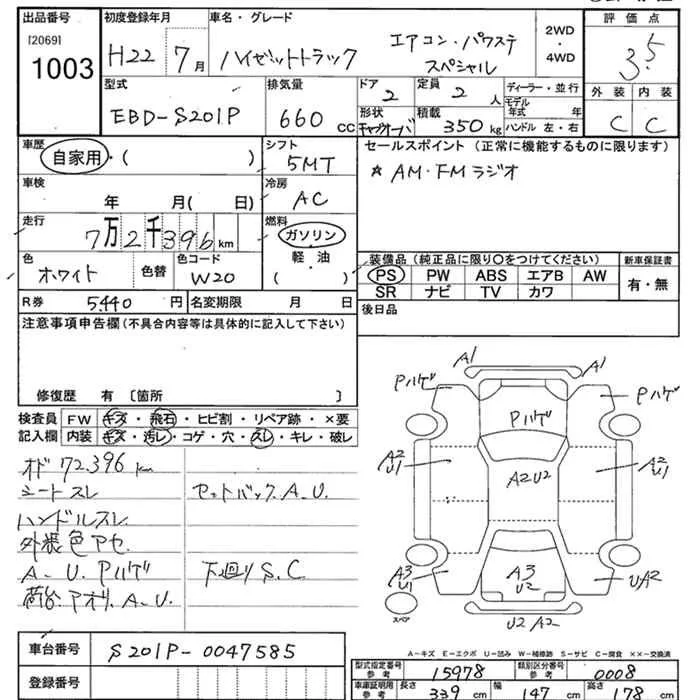 出品番号 初度登録年月 車名・グレード 評価点
[2069] 1003 H22年 7月 ハイゼットトラック エアコン・パワステ スペシャル 2WD・4WD 3.5
型式 排気量 ドア 2 定員 2人 ディーラー・並行 外装 内装
EBD-S201P 660cc 形状 キャブオーバ 積載 350kg モデル年式 年 ハンドル 左・右 C C
車歴 自家用・( ) シフト 5MT セールスポイント(正常に機能するものに限ります)
車検 年 月( 日) 冷房 AC ☆AM・FMラジオ
走行 7万2千396km 燃料 ガソリン・軽油・( )
色 ホワイト 色替 色コード W20 装備品(純正品に限り○をつけてください) 新車保証書
PS PW ABS エアB AW 有・無
SR ナビ TV カワ
R券 5440円 名変期限 月 日 後日品
注意事項申告欄(不具合内容等は具体的に記入して下さい)
修復歴 有 〔箇所 〕
検査員 FW キズ・飛石・ヒビ割・リペア跡・×要
記入欄 内装 キズ・汚レ・コゲ・穴・スレ・キレ・破レ
オド72,396km
シートスレ セットバックA.U.
ハンドルスレ
外装色アセ
A-U.Pハゲ 下回りS.C
荷台.アオリ.A.U.
A1 A1
Pハゲ Pハゲ
Pハゲ
A2 U1 A2U2 A2 U1
A3 U1 A3 U2 UA2
スペア U2 A2
A-キズ E-エクボ U-凹み W-補修跡 S-サビ C-腐食 ××-交換済
車台番号 S201P-0047585
登録番号
型式指定番号 参考 15978 類別区分番号 参考 0008
車庫証明用 参考 長さ 339cm 幅 147cm 高さ 178cm